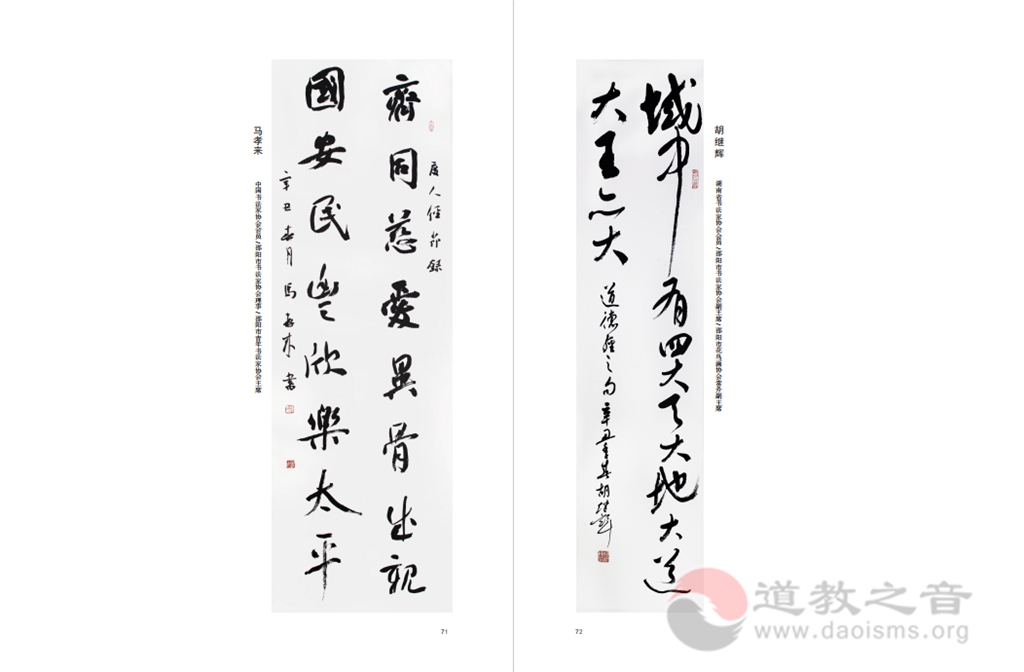 马孝来
中国书法家协会会员/邵阳市书法家协会理事/邵阳市青年书法家协会主席
齊同慈愛異骨成親
度人經節錄
國安民豐欣樂太平
辛丑春月馬孝来書
71
胡继辉
湖南省书法家协会会员/邵阳市书法家协会副主席/邵阳市花鸟画协会常务副主席
域中有四大天大地大道
大王亦大
道德經之句辛丑胡继辉
72
道教之音
www.daoisms.org